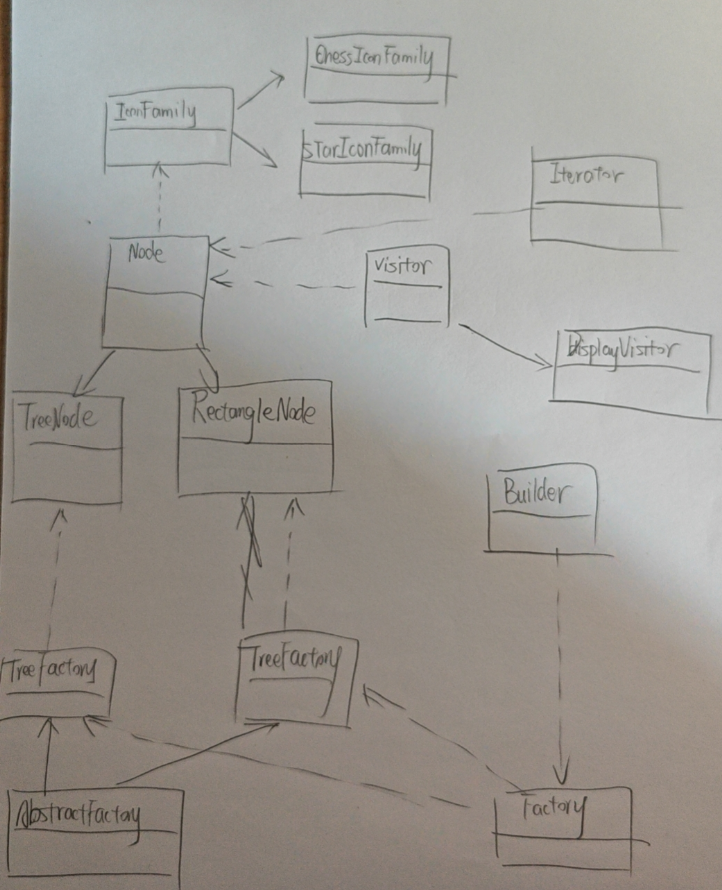 ChessIconFamily
IconFamily
StarIconFamily
Iterator
Node
Visitor
DisplayVisitor
TreeNode
RectangleNode
Builder
TreeFactory
TreeFactory
AbstractFactory
Factory